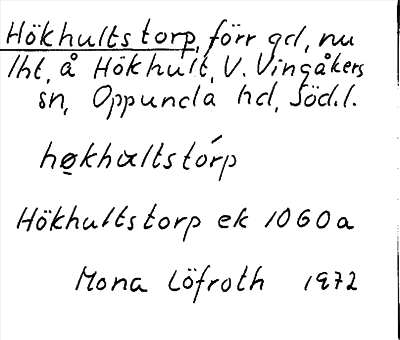 Hökhultstorp, förr gd, nu
lht, å Hökhult, V. Vingåkers
sn, Oppunda hd, Söd.l.
hø̱khαltstórp
Hökhultstorp ek 1060a
Mona Löfroth 1972